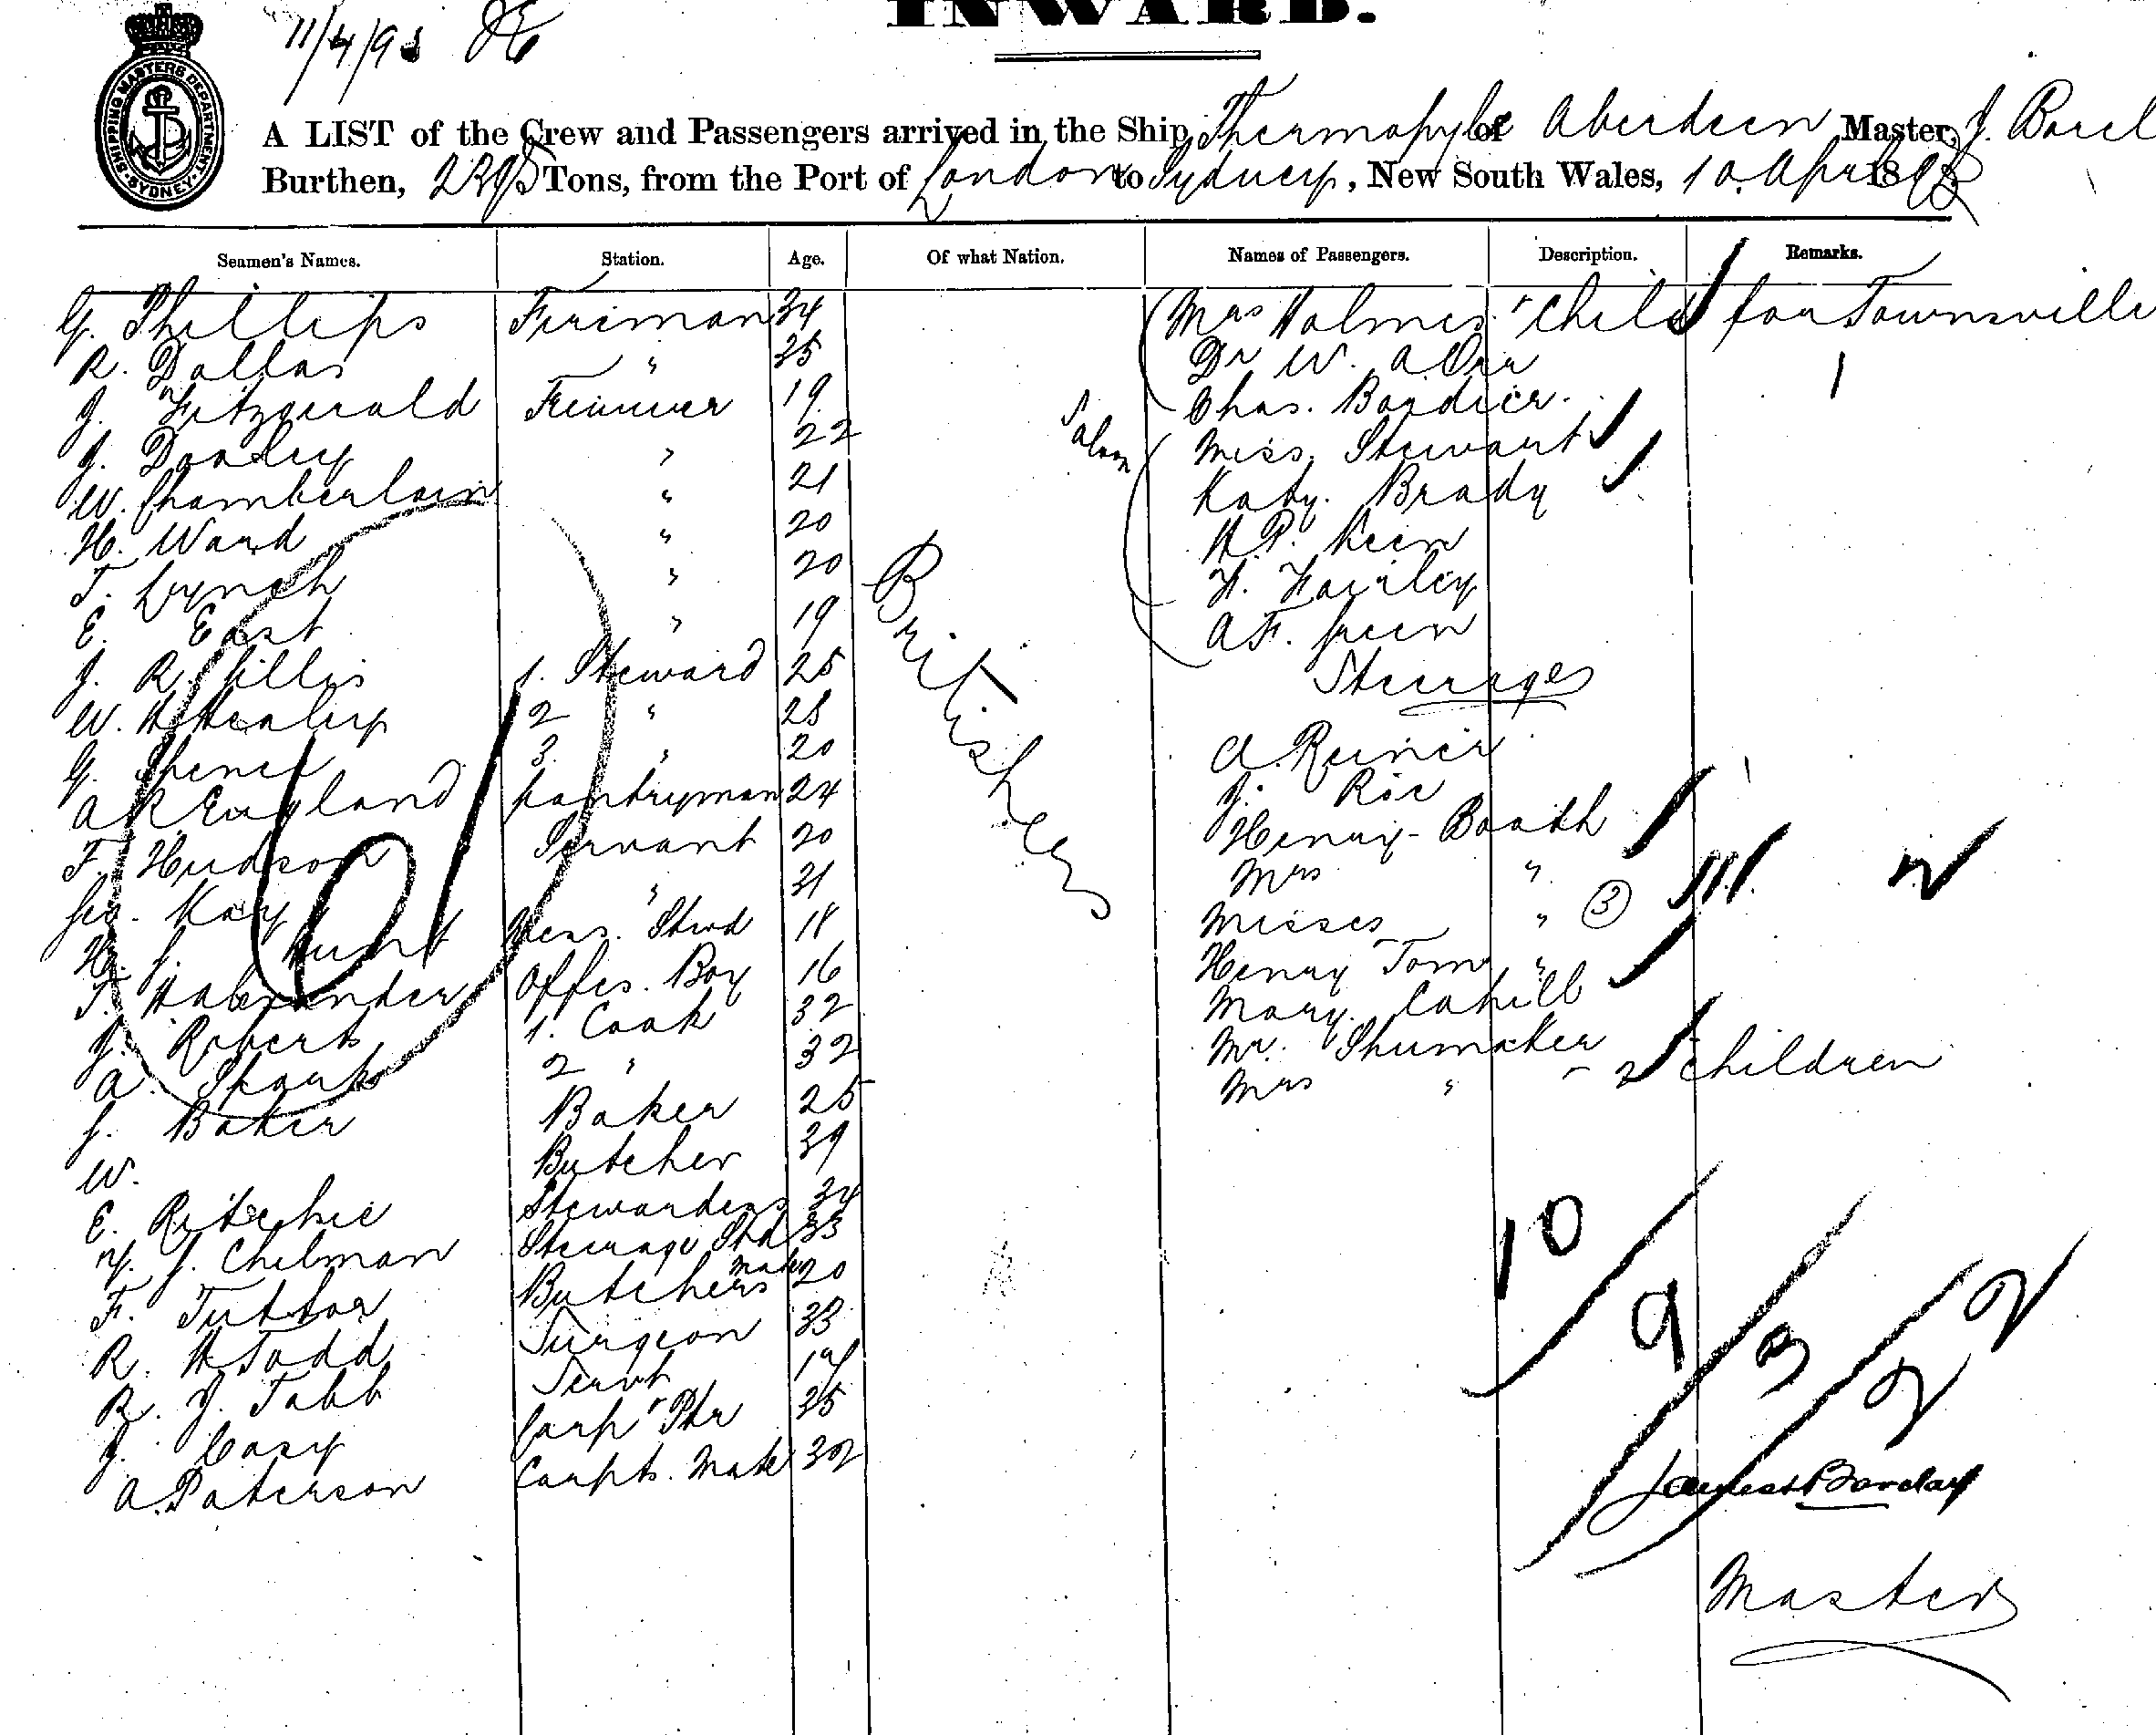 INWARD.
11/4/93
SHIPPING MASTERS DEPARTMENT SYDNEY
A LIST of the Crew and Passengers arrived in the Ship Thermopylae of Aberdeen Master, J. Barcl
Burthen, Tons, from the Port of London to Sydney, New South Wales, 10 April 1893
Seamen's Names. Station. Age. Of what Nation. Names of Passengers. Description. Remarks.
G. Phillips Fireman 34 Mrs Holmes Child for Townsville
R. Dallas " 35 Dr W. A Orr
J. Fitzgerald Trimmer 19 Chas.
J. " 22 Saloon Miss. Stewart
W. Chamberlain " 21 Katy. Brady
H. Ward " 20 H.P. Keen
T. Lynch " 20 H. Fairley
E. East " 19 A F. Green
J. R. Gillis 1. Steward 25 Steerage
W. H Healey 2 " 28
G. Spence 3. " 20 A.
A R England Pantryman 24 J.
F. Hudson Servant 20 Henry Booth
Geo. Kay " 31 Mrs "
H. J. Hunt Mess. Stwd 18 Misses " 3
T. H Alexander Offes. Boy 16 Henry Tom "
J. Roberts 1. Cook 32 Mary. Cahill
A. Spark 2 " 32 Mr. Shumaker
J. Baker Baker 25 Mrs " 2 Children
W. Butcher 39
E. Ritchie Stewardess 34
J. Chelman Steerage Std 33
F. Butchers Mate 20
R. H Todd Surgeon 33
R. J. Tabb Servt 19
J. Casy 25
A. Paterson Carptr. Mate 32
Britishers
10
9
3
2 2
James Barclay
Master